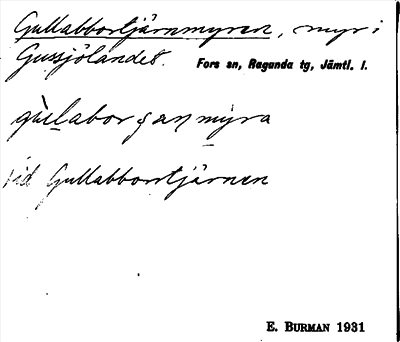 Gullabborrtjärnmyren, myr i
Gussjölandet.
Fors sn, Ragunda tg, Jämtl. l.
vid Gullabborrtjärnen
E. BURMAN 1931